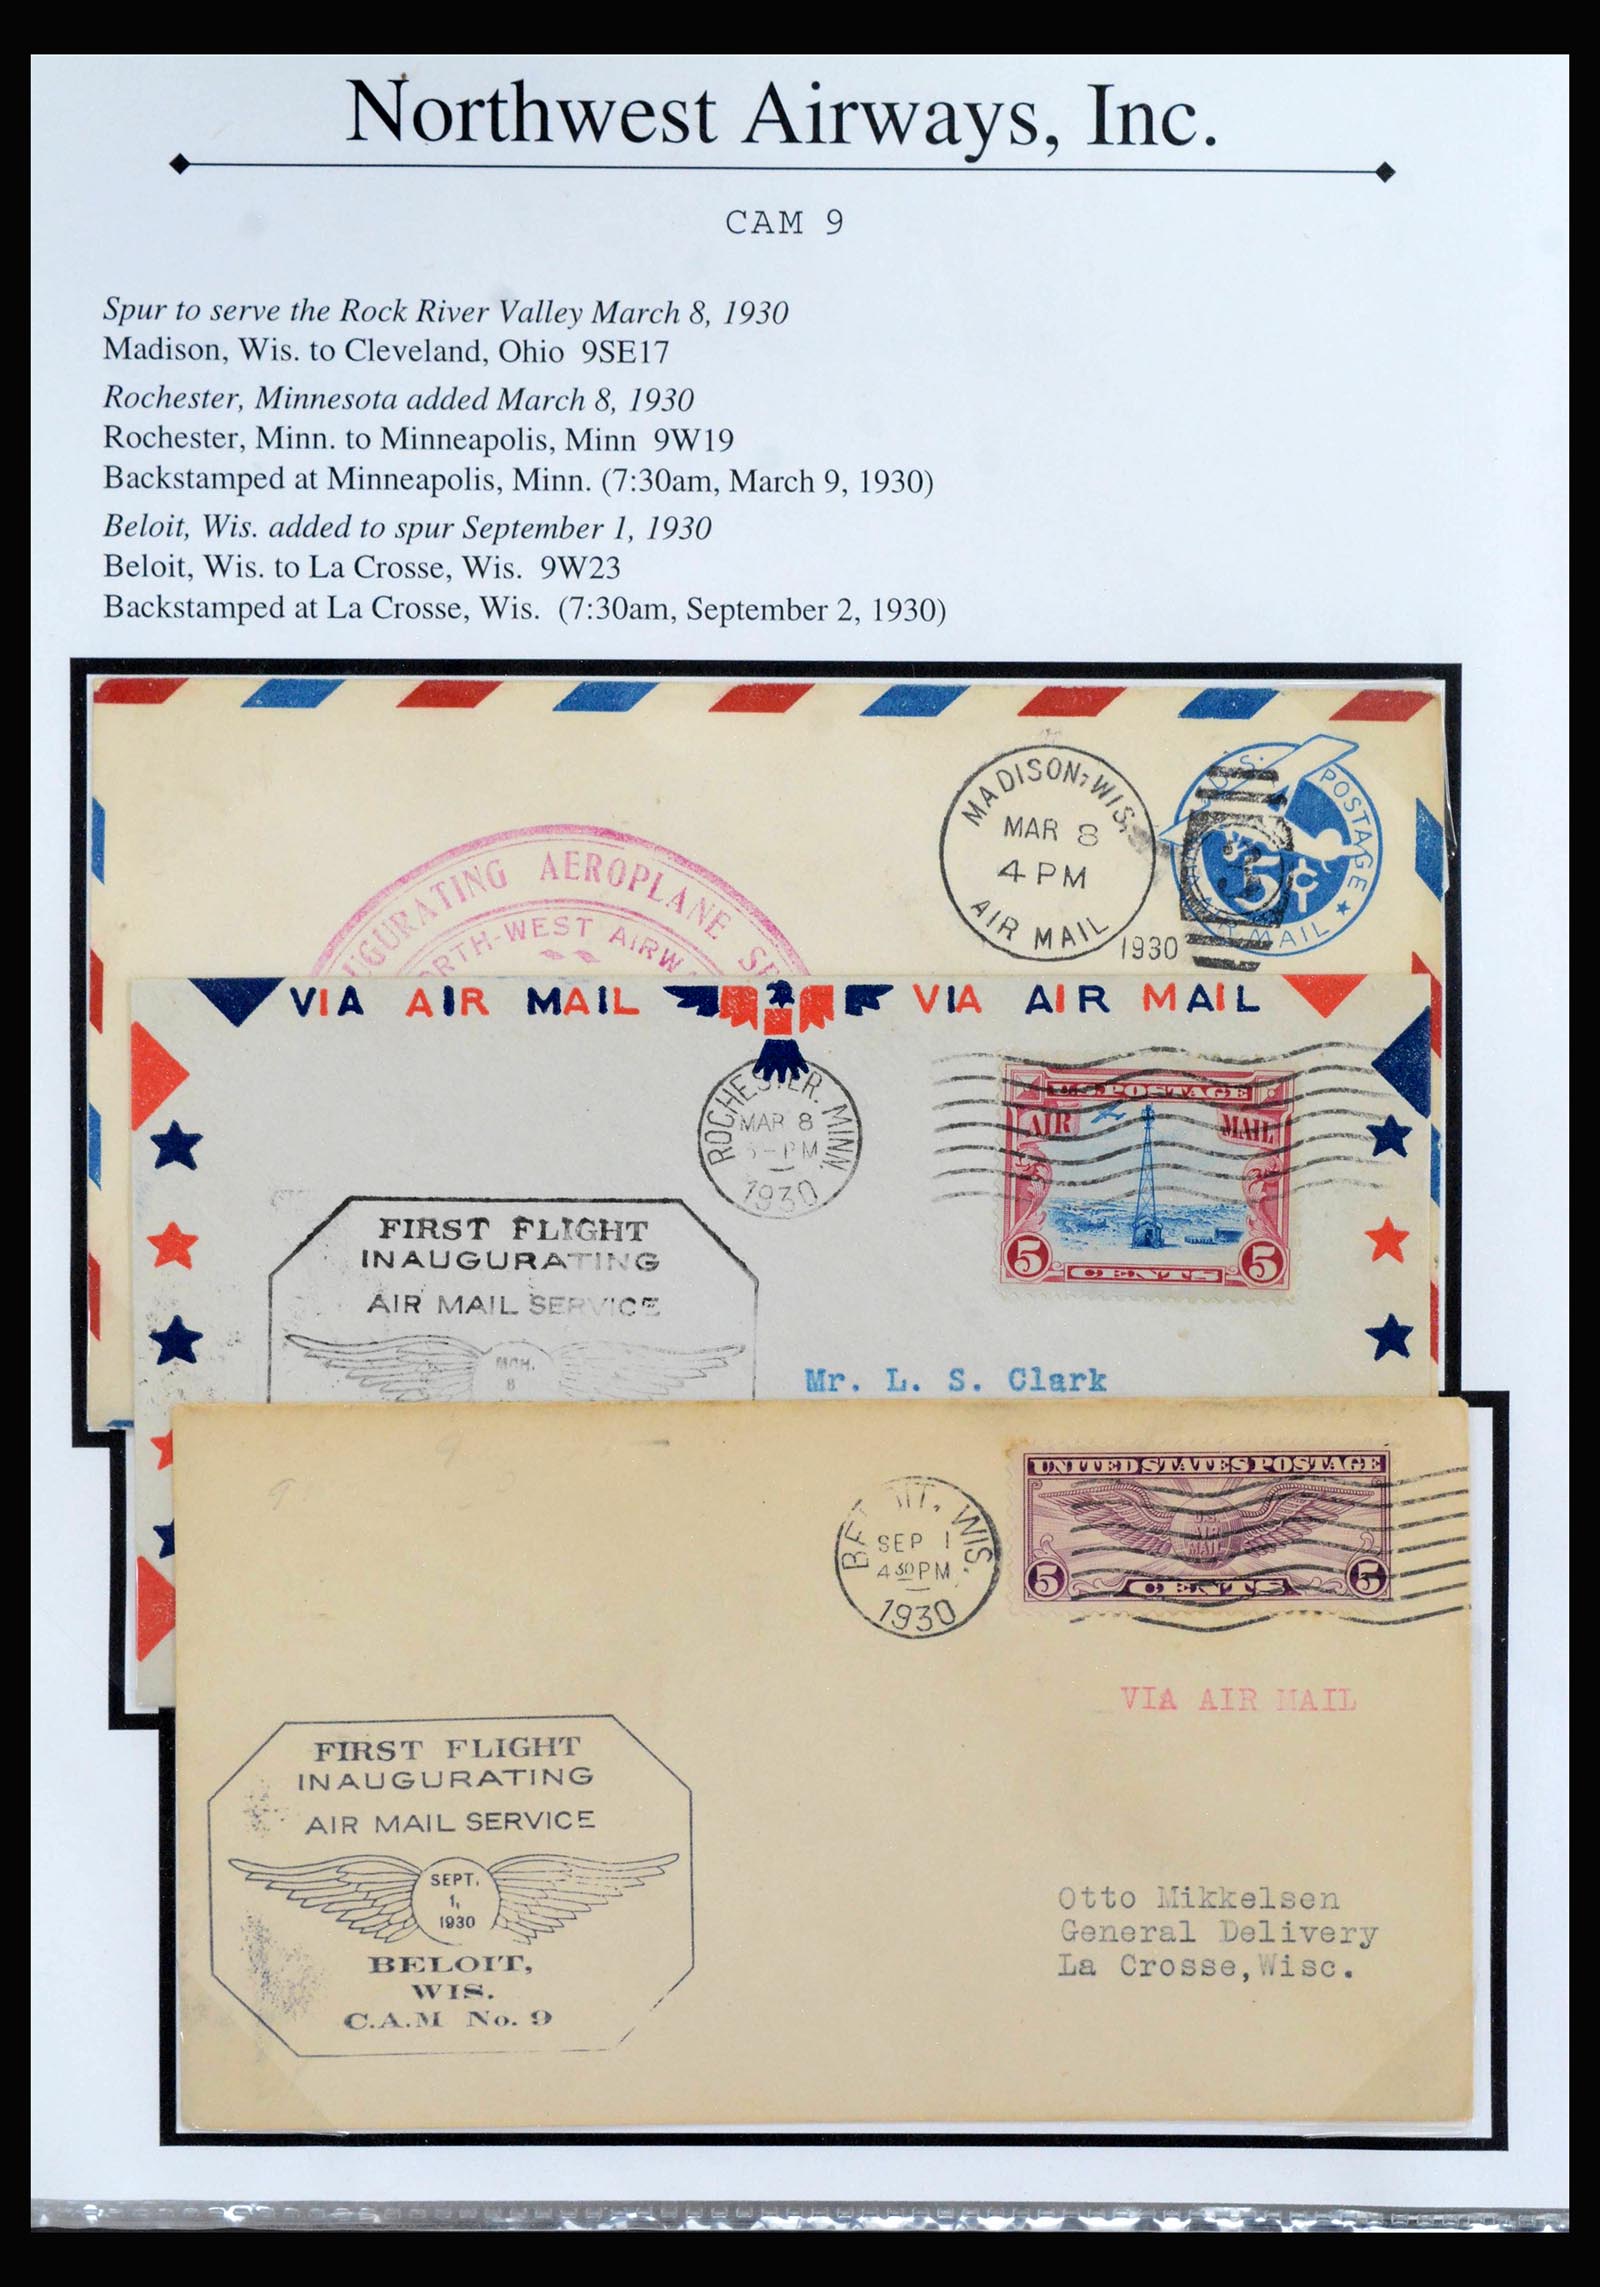 Northwest Airways, Inc.
CAM 9
Spur to serve the Rock River Valley March 8, 1930
Madison, Wis. to Cleveland, Ohio 9SE17
Rochester, Minnesota added March 8, 1930
Rochester, Minn. to Minneapolis, Minn 9W19
Backstamped at Minneapolis, Minn. (7:30am, March 9, 1930)
Beloit, Wis. added to spur September 1, 1930
Beloit, Wis. to La Crosse, Wis. 9W23
Backstamped at La Crosse, Wis. (7:30am, September 2, 1930)
MADISON, WIS.
MAR 8
4 PM
AIR MAIL
1930
POSTAGE
MAIL
AEROPLANE
NORTH-WEST
VIA AIR MAIL
VIA AIR MAIL
ROCHESTER, MINN.
MAR 8
PM
1930
U.S. POSTAGE
AIR MAIL
5 CENTS 5
FIRST FLIGHT
INAUGURATING
AIR MAIL SERVICE
MCH.
8
Mr. L. S. Clark
WIS.
SEP 1
4 30 PM
1930
UNITED STATES POSTAGE
U.S.
AIR
MAIL
5 CENTS 5
VIA AIR MAIL
FIRST FLIGHT
INAUGURATING
AIR MAIL SERVICE
SEPT.
1,
1930
BELOIT,
WIS.
C.A.M No. 9
Otto Mikkelsen
General Delivery
La Crosse, Wisc.